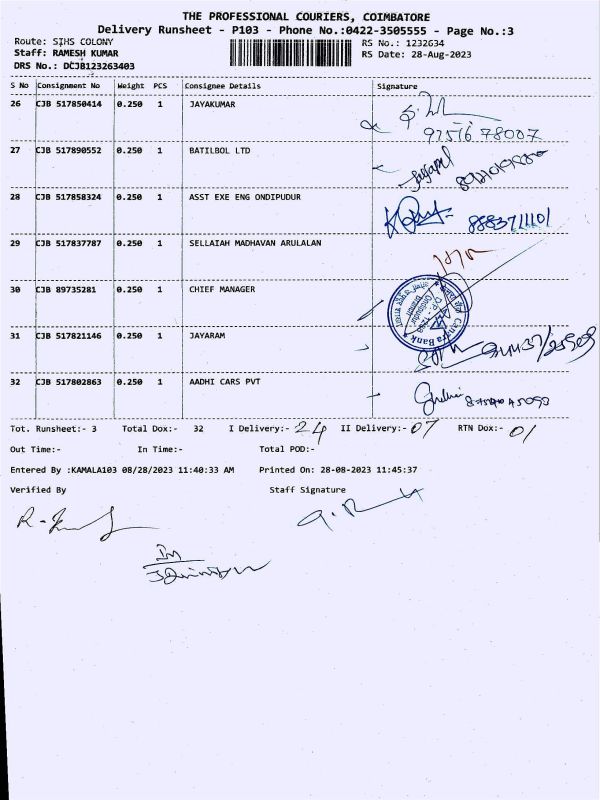 THE PROFESSIONAL COURIERS, COIMBATORE
Delivery Runsheet - P103 - Phone No.:0422-3505555 - Page No.:3
Route: SIHS COLONY RS No.: 1232634
Staff: RAMESH KUMAR RS Date: 28-Aug-2023
DRS No.: DCJB123263403
S No Consignment No Weight PCS Consignee Details Signature
26 CJB 517850414 0.250 1 JAYAKUMAR
27 CJB 517890552 0.250 1 BATILBOL LTD
28 CJB 517858324 0.250 1 ASST EXE ENG ONDIPUDUR
29 CJB 517837787 0.250 1 SELLAIAH MADHAVAN ARULALAN
30 CJB 89735281 0.250 1 CHIEF MANAGER
Canara Bank
31 CJB 517821146 0.250 1 JAYARAM
32 CJB 517802863 0.250 1 AADHI CARS PVT
Tot. Runsheet:- 3 Total Dox:- 32 I Delivery:- 24 II Delivery:- 07 RTN Dox:- 01
Out Time:- In Time:- Total POD:-
Entered By :KAMALA103 08/28/2023 11:40:33 AM Printed On: 28-08-2023 11:45:37
Verified By Staff Signature